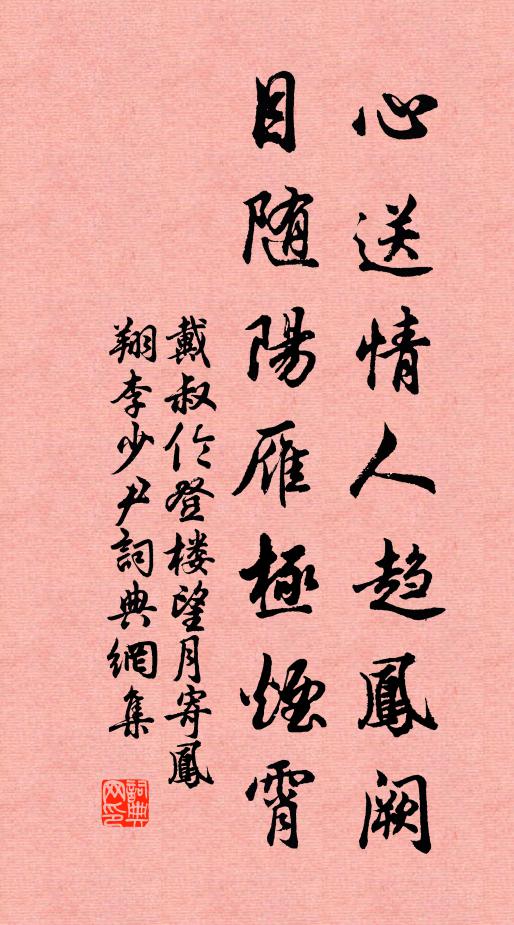 心送情人趨鳳闕
目随陽雁極煙霄
戴叔伦登楼望月寄鳳
翔李少尹詞典網集
詞典網印